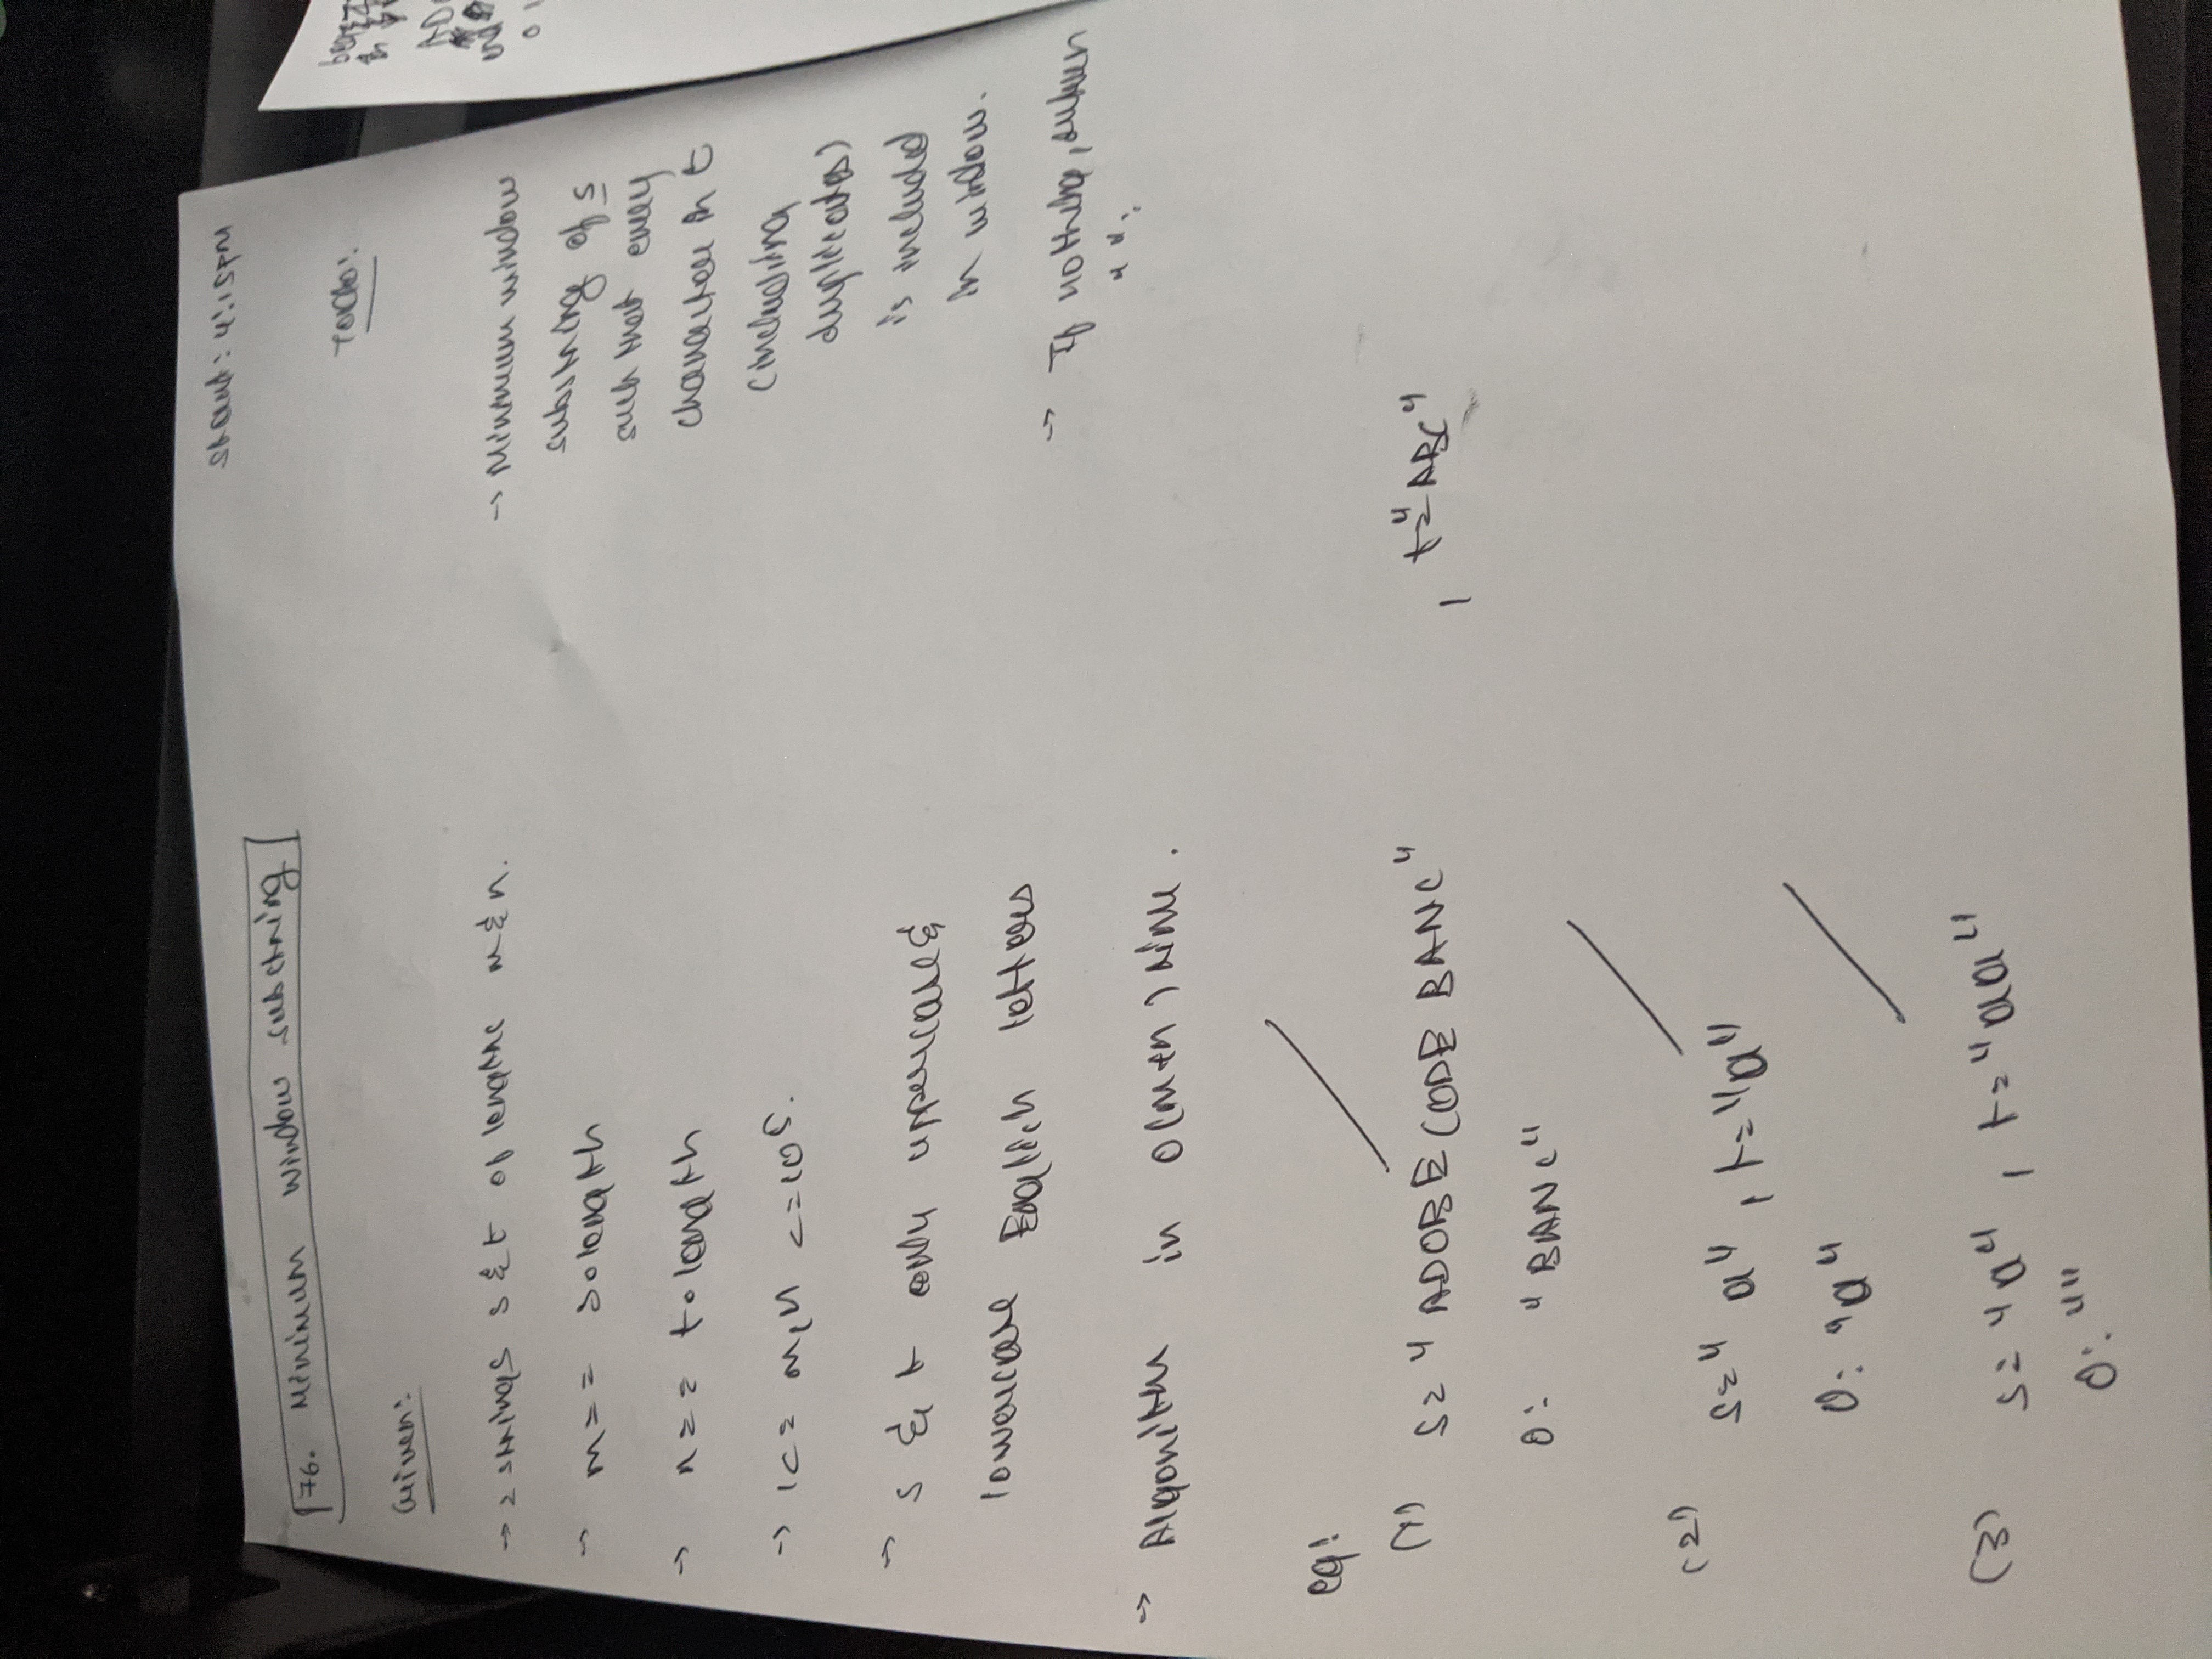 start: 4:15PM
76. Minimum window substring
Todo:
Given:
→ 2 strings s & t of lengths m & n.
→ m == s.length
→ n == t.length
→ 1<= m,n <=10^5.
→ s & t only uppercase &
lowercase English letters
→ Algorithm in O(m+n) time.
→ Minimum window
substring of s
such that every
character in t
(including
duplicates)
is included
in window.
→ If nothing, return
"".
eg:
(1) s= "ADOBECODEBANC" , t="ABC"
O: "BANC"
(2)
s="a", t="a"
O: "a"
(3) s="a", t="aa"
O: ""